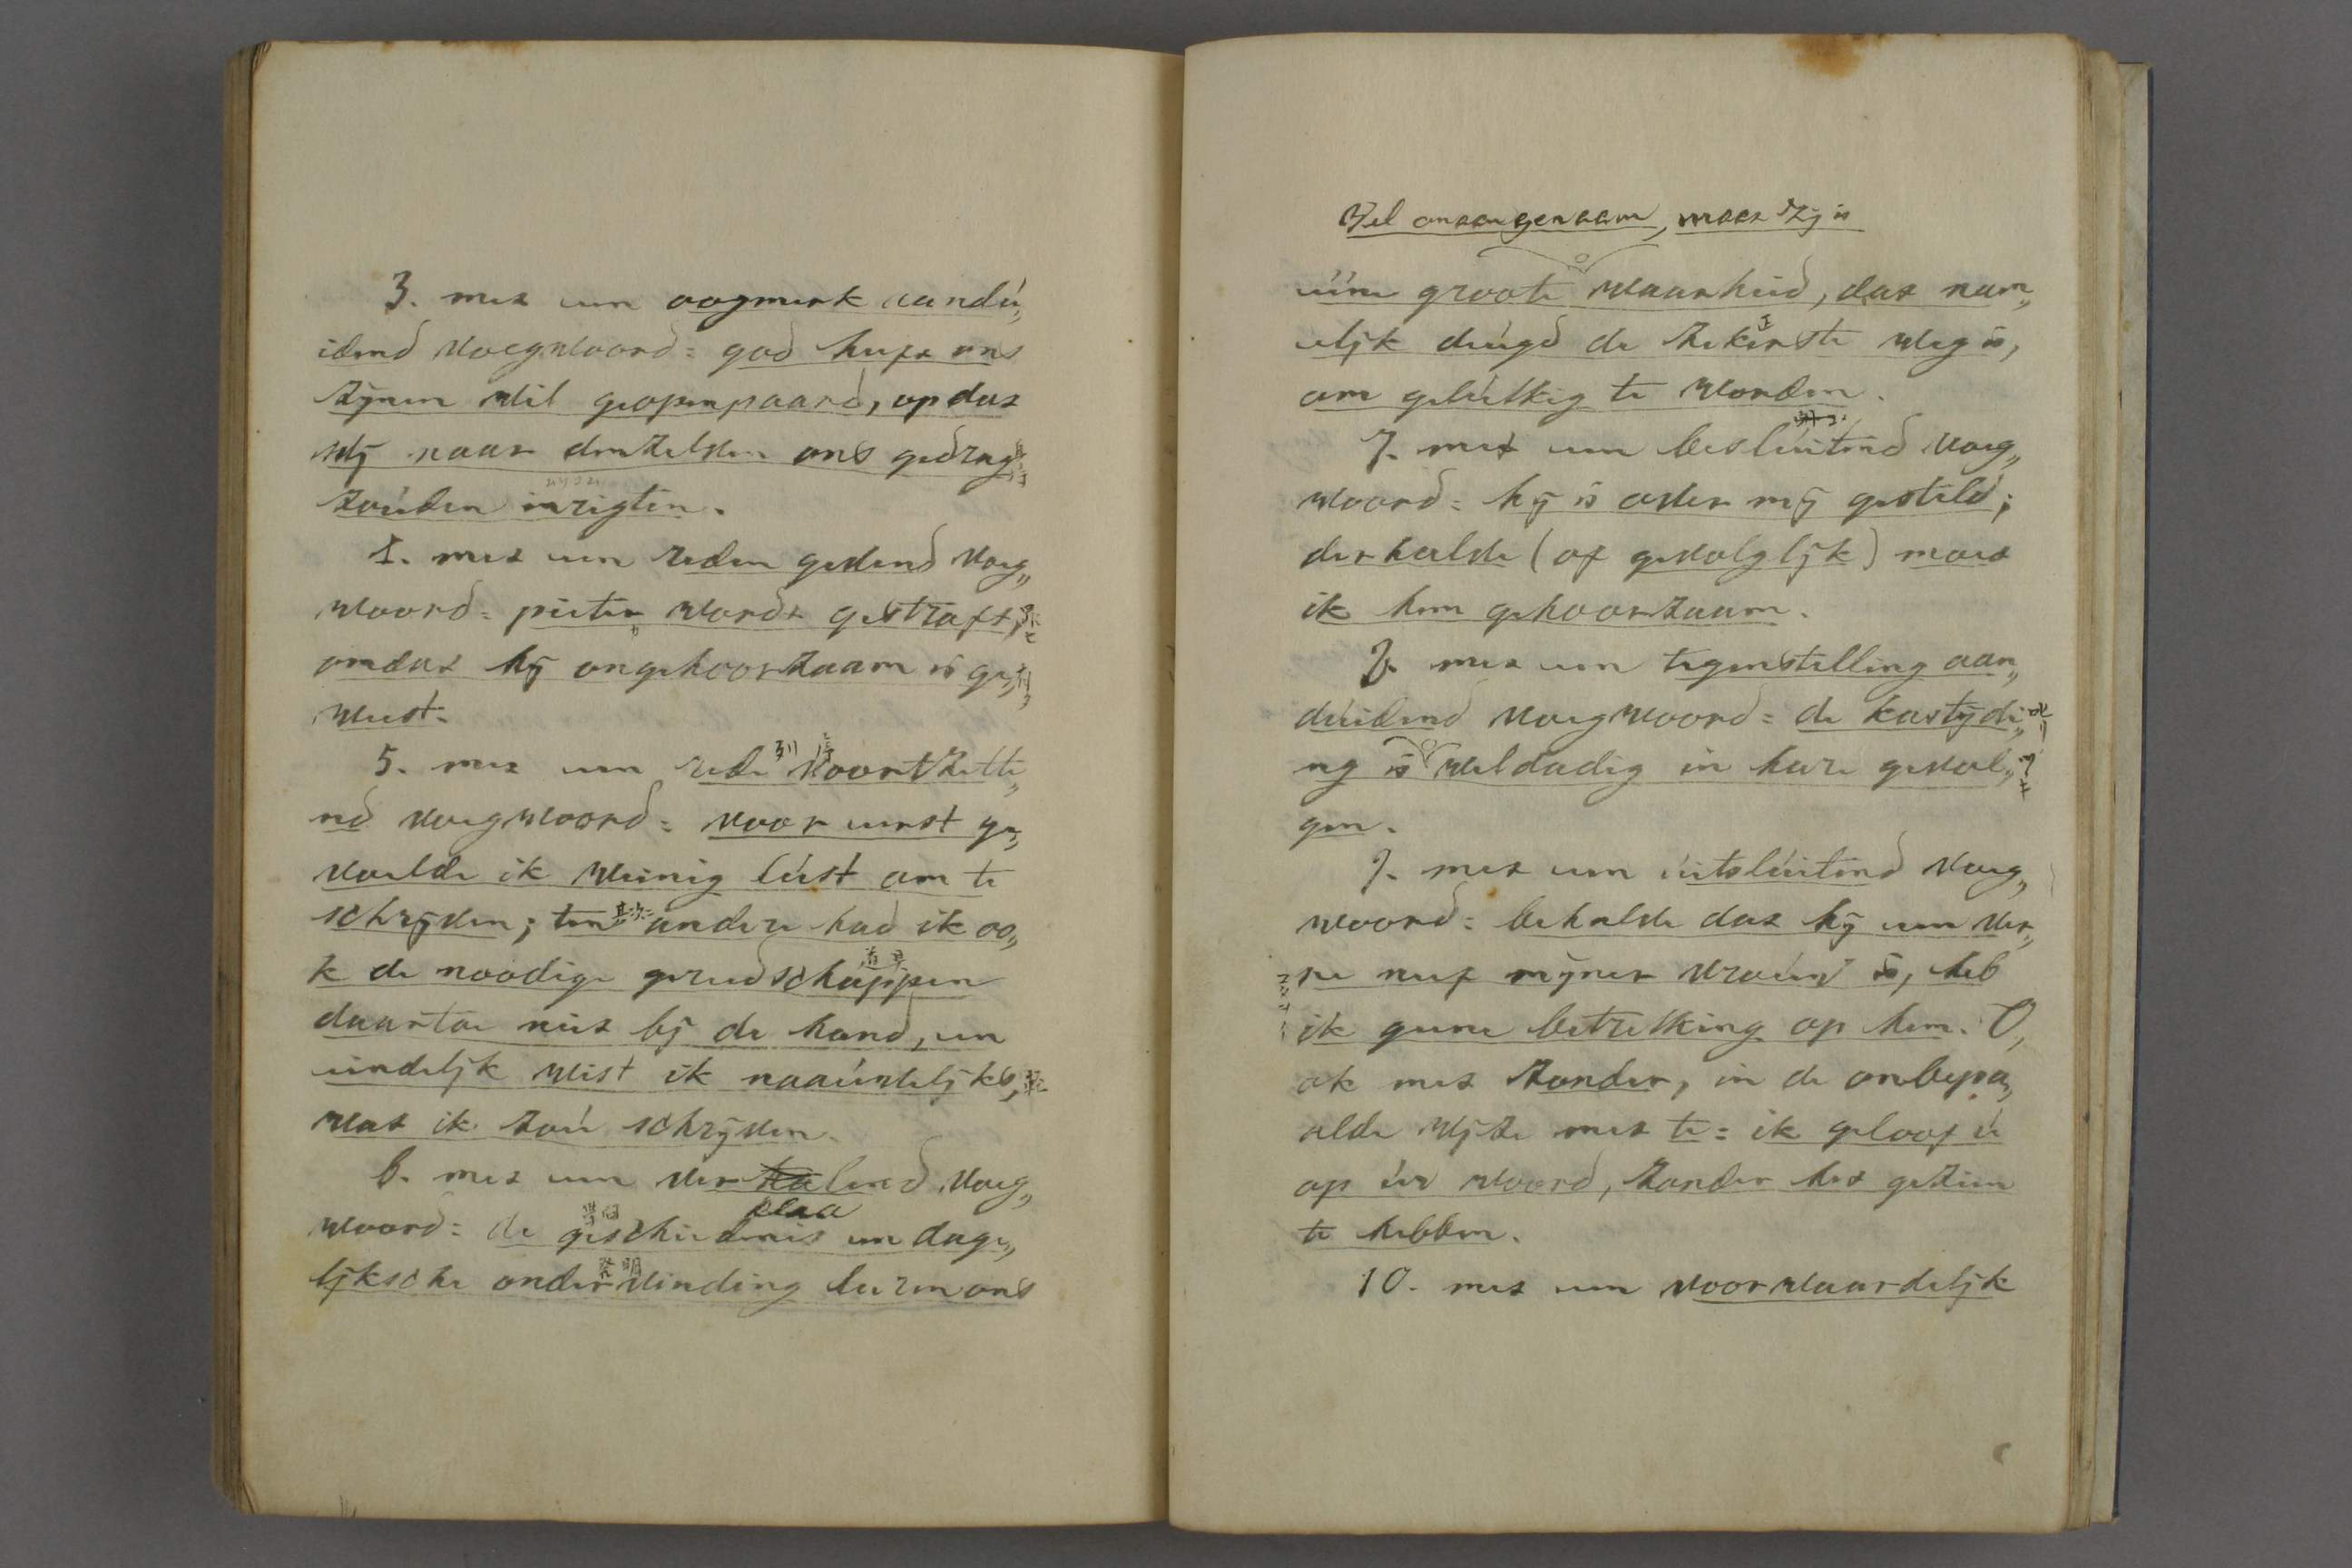 3. met een oogmerk aandú„
idend voegwoord = god heeft ons
zijnen wil geopenpaard, opdat
wij naar denzelven ons gedrag
zoúden inrigten.
4. met een reden gevend voeg„
woord = pieter wordt gestraft,
omdat hij ongehoorzaam is ge„
weest.
5. met een rede voortzette„
列 序
nd voegwoord = voor eerst ge„
voelde ik weinig lúst om te
schrijven; ten andere had ik oo„
其次
k de noodige gereedschappen
道具
daartoe niet bij de hand, en
eindelijk wist ik naaúwelijks,
wat ik zoú schrijven.
6. met een verhalend voeg„
klaa
woord = de geschiedenis en dage„
lijksche ondervinding leeren ons
發明
Wel onaangenaam, maar zij is
eéne groote waarheid, dat nam„
elijk deúgd de zekerste weg is,
om gelúkkig te worden.
7. met een beslúitend voeg„
woord = hij is over mij gesteld;
derhalve (of gevolglijk) moet
ik hem gehoorzaam.
8. met een tegenstelling aan„
dúidend voegwoord = de kastijdi„
ng is weldadig in hare gevol„
gen.
9. met een úitslúitend voeg„
woord = behalve dat hij een ver„
re neef mijner vroúw is, heb
ik geene betrekking op hem. O,
ok met zonder, in de onbepa„
alde wijze met te = ik geloof ú
op úw woord, zonder het gezien
te hebben.
10. met een voorwaardelijk